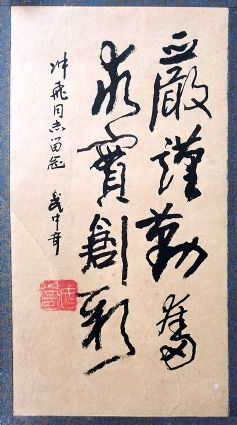 嚴謹勤奮
求實創新
冲飛同志留念
武中奇